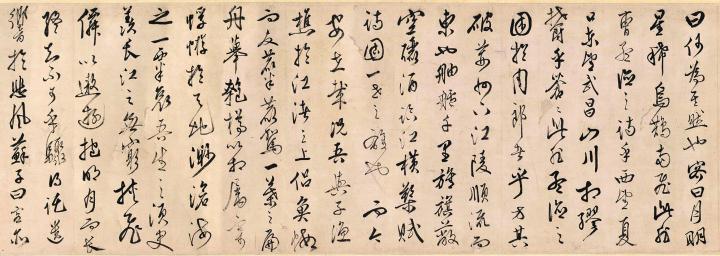 曰何為其然也客曰月明
星稀烏鵲南飛此非
曹孟德之詩乎西望夏
口東望武昌山川相繆
鬱乎蒼蒼此非孟德之
困於周郎者乎方其
破荊州下江陵順流而
東也舳艫千里旌旗蔽
空釃酒臨江橫槊賦
詩固一世之雄也而今
安在哉況吾與子漁
樵於江渚之上侶魚蝦
而友麋鹿駕一葉之扁
舟舉匏樽以相屬寄
蜉蝣於天地渺滄海
之一粟哀吾生之須臾
羨長江之無窮挾飛
僊以遨遊抱明月而長
終知不可乎驟得託遺
響於悲風蘇子曰客亦